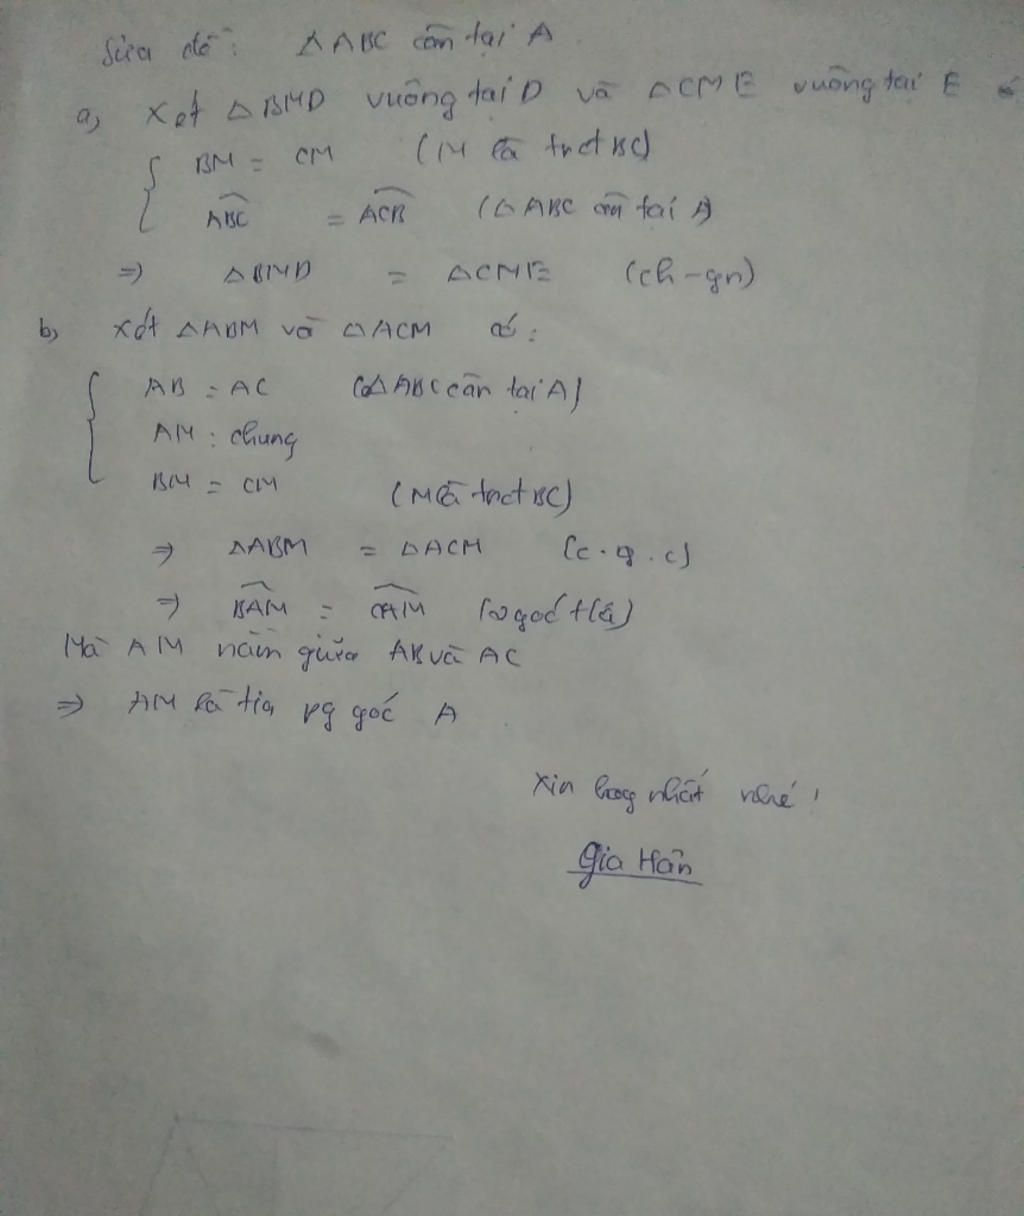 Sửa đề: △ABC cân tại A
a, Xét △BMD vuông tại D và △CME vuông tại E có
BM = CM (M là trđ BC)
ABC = ACB (△ABC cân tại A)
⇒ △BMD = △CME (ch-gn)
b, Xét △ABM và △ACM có:
AB = AC (△ABC cân tại A)
AM: chung
BM = CM (M là trđ BC)
⇒ △ABM = △ACM (c.g.c)
⇒ BAM = CAM (2 góc t/ứ)
Mà AM nằm giữa AB và AC
⇒ AM là tia pg góc A
Xin hay nhất nhé!
Gia Hân